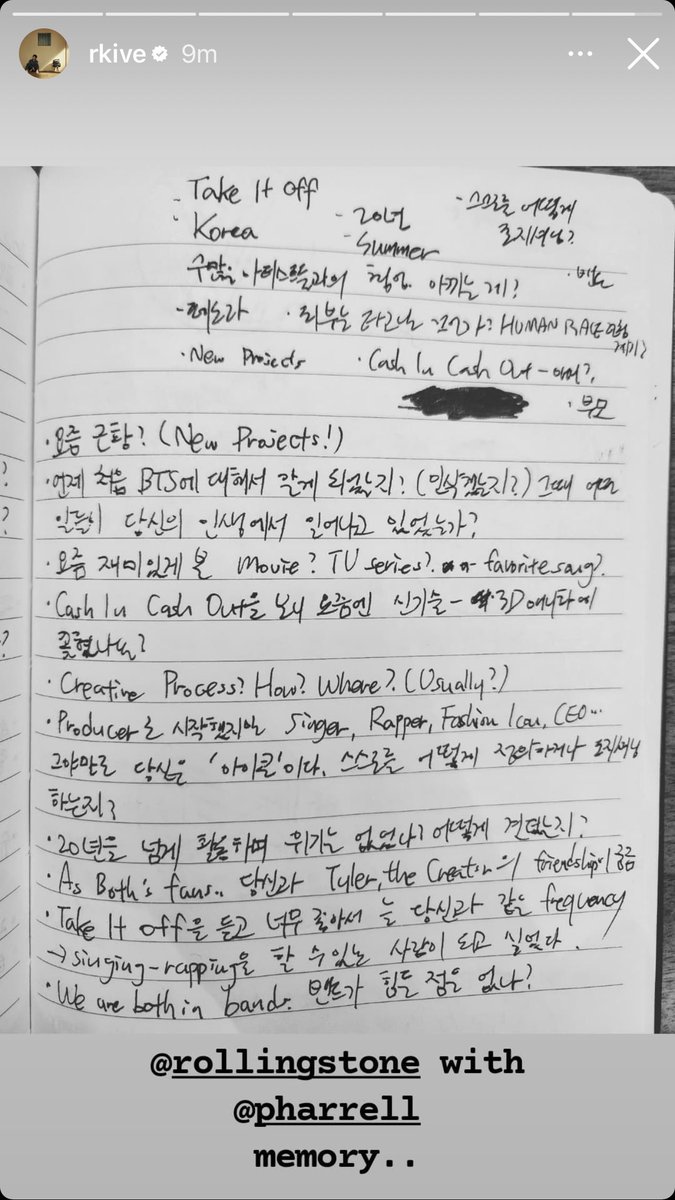 rkive 9m
- Take It Off
- Korea - 20년 - 스스로를 어떻게
- Summer 포지셔닝?
수많은 아티스트들과의 협업. 아끼는 게? · 밴드
· 피부는 타고난 건가? HUMAN RACE
· New Projects · Cash In Cash Out -
· 부모
· 요즘 근황? (New Projects!)
· 언제 처음 BTS에 대해서 알게 되었는지? (인식했는지?) 그때 어떤
일들이 당신의 인생에서 일어나고 있었는가?
· 요즘 재미있게 본 Movie? TV series? favorite song?
· Cash In Cash Out을 보니 요즘엔 신기술 - 3D 에
꽂혔나?
· Creative Process? How? Where? (Usually?)
· Producer로 시작했지만 Singer, Rapper, Fashion Icon, CEO...
그야말로 당신은 '아이콘'이다. 스스로를 어떻게 정의하거나 포지셔닝
하는지?
· 20년을 넘게 활동하며 위기는 없었나? 어떻게 견뎠는지?
· As Both's fans.. 당신과 Tyler, the Creator의 friendship이 궁금
· Take It Off을 듣고 너무 좋아서 늘 당신과 같은 frequency
→ singing-rapping을 할 수 있는 사람이 되고 싶었다.
· We are both in bands. 밴드가 힘든 점은 없나?
@rollingstone with
@pharrell
memory..